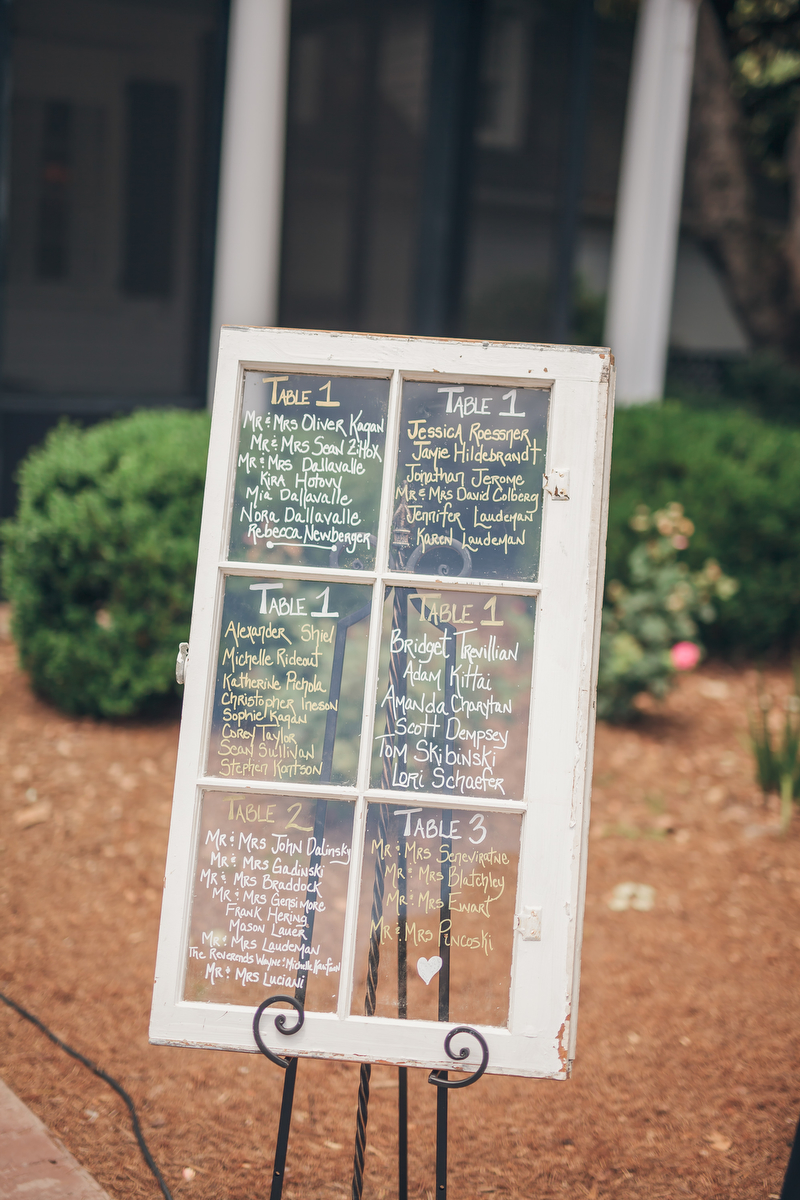 TABLE 1
Mr & Mrs Oliver Kagan
Mr & Mrs Sean Zitlox
Mr & Mrs Dallavalle
Kira Hotovy
Mia Dallavalle
Nora Dallavalle
Rebecca Newberger
TABLE 1
Jessica Roessner
Jamie Hildebrandt
Jonathan Jerome
Mr & Mrs David Colberg
Jennifer Laudeman
Karen Laudeman
TABLE 1
Alexander Shiel
Michelle Rideout
Katherine Pichola
Christopher Ineson
Sophie Kagan
Corey Taylor
Sean Sullivan
Stephen Kontson
TABLE 1
Bridget Trevillian
Adam Kittai
Amanda Charytan
Scott Dempsey
Tom Skibinski
Lori Schaefer
TABLE 2
Mr & Mrs John Dalinsky
Mr & Mrs Gadinski
Mr & Mrs Braddock
Mr & Mrs Gensimore
Frank Hering
Mason Lauer
Mr & Mrs Laudeman
The Reverends Wayne & Michelle Kaufman
Mr & Mrs Luciani
TABLE 3
Mr & Mrs Seneviratne
Mr & Mrs Blatchley
Mr & Mrs Ewart
Mr & Mrs Pincoski